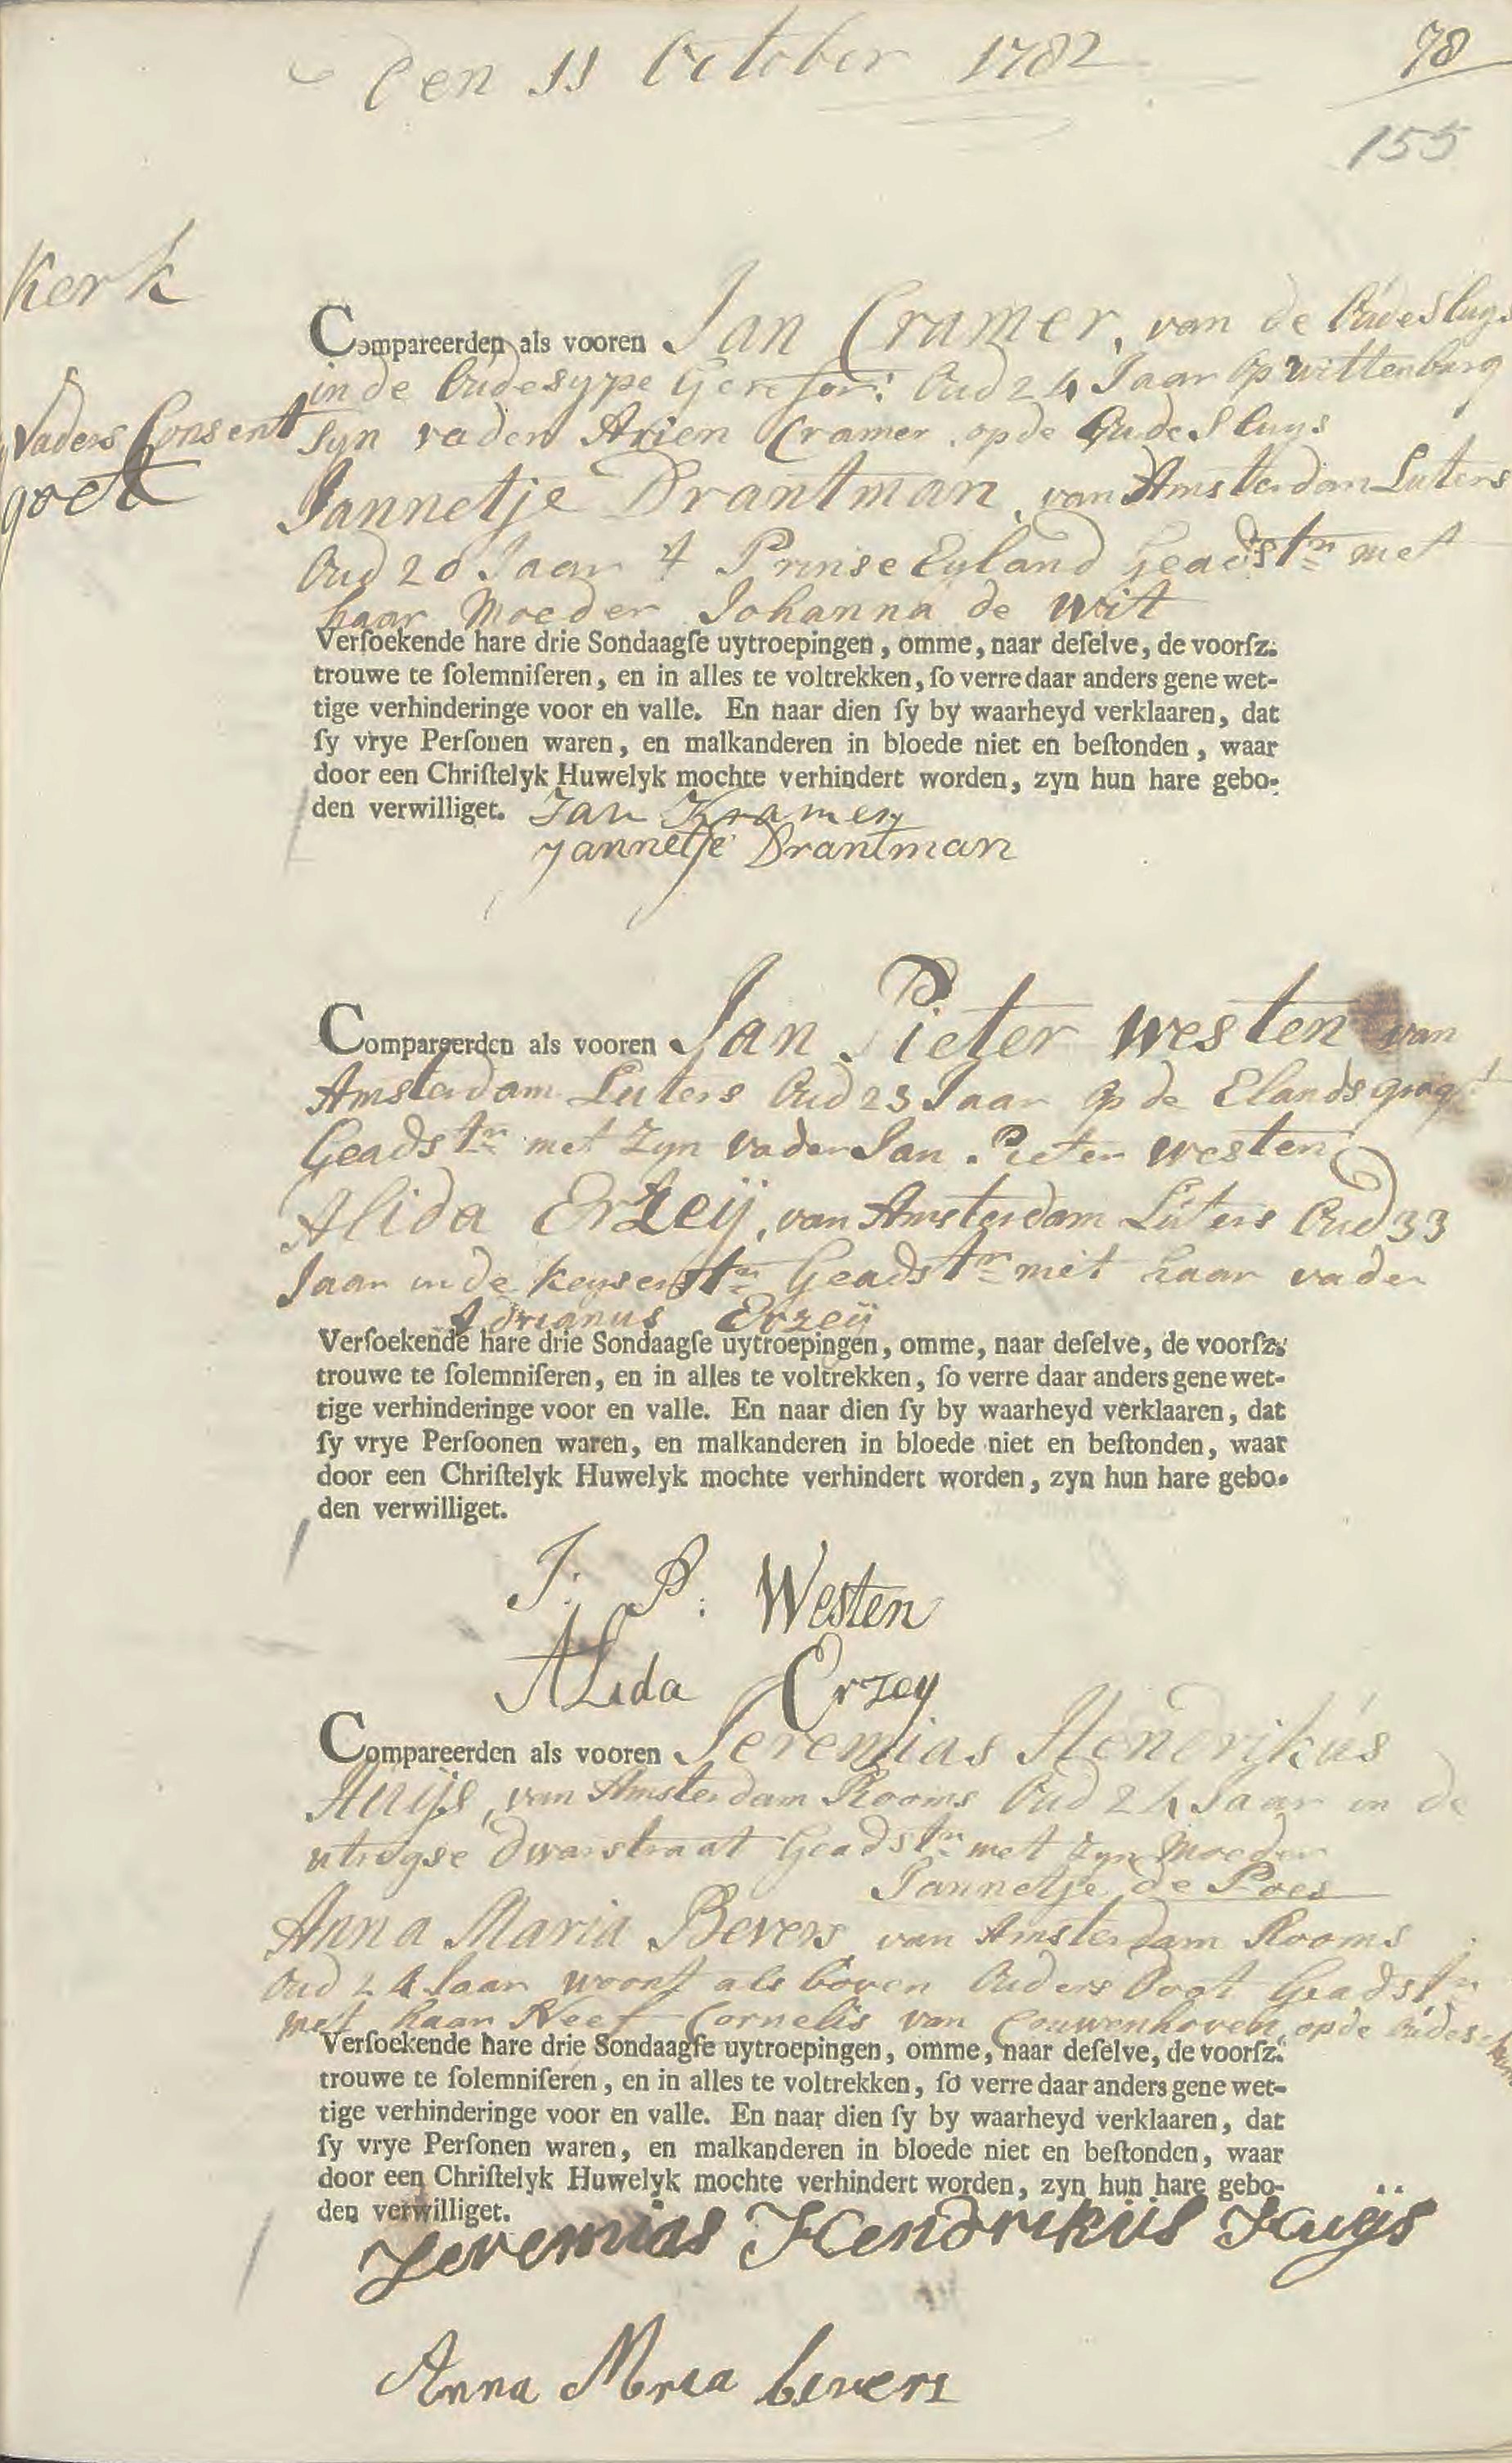 Den 11 October 1782
78
155
Kerk
Compareerden als vooren Jan Cramer, van de Oude Sluys
in de Oudesype Gerefor: Oud 24 Jaar op wittenburg
Vaders Consent
goet
Syn vader Arien Cramer op de Oude Sluys
Jannetje Drantman, van Amsterdam Luters
Oud 20 Jaar Prinse Eyland Geadstr met
haar Moeder Johanna de Wit
Verſoekende hare drie Sondaagſe uytroepingen, omme, naar deſelve, de voorſz.
trouwe te ſolemniſeren, en in alles te voltrekken, ſo verre daar anders gene wet-
tige verhinderinge voor en valle. En naar dien ſy by waarheyd verklaaren, dat
ſy vrye Perſonen waren, en malkanderen in bloede niet en beſtonden, waar
door een Chriſtelyk Huwelyk mochte verhindert worden, zyn hun hare gebo-
den verwilliget. Jan Kramer
Jannetje Drantman
Compareerden als vooren Jan Pieter Westen van
Amsterdam Luters Oud 23 Jaar op de Elandsgragt
Geadstr met Zyn vader Jan Pieter Westen
Alida Erzeij, van Amsterdam Luters Oud 33
Jaar in de Keyserstr Geadstr met haar vader
Adrianus Erzeij
Verſoekende hare drie Sondaagſe uytroepingen, omme, naar deſelve, de voorſz.
trouwe te ſolemniſeren, en in alles te voltrekken, ſo verre daar anders gene wet-
tige verhinderinge voor en valle. En naar dien ſy by waarheyd verklaaren, dat
ſy vrye Perſoonen waren, en malkanderen in bloede niet en beſtonden, waar
door een Chriſtelyk Huwelyk mochte verhindert worden, zyn hun hare gebo-
den verwilliget.
J: P: Westen
ALida Erzey
Compareerden als vooren Jeremias Hendrikús
Huijs, van Amsterdam Rooms Oud 24 Jaar in de
utregse dwarstraat Geadstr met zyn Moeder
Jannetje de Poes
Anna Maria Bevers van Amsterdam Rooms
Oud 24 Jaar woont als boven Ouders Doot Geadstr
met haar Neef Cornelis van Couwenhoven, op de
Verſoekende hare drie Sondaagſe uytroepingen, omme, naar deſelve, de voorſz.
trouwe te ſolemniſeren, en in alles te voltrekken, ſo verre daar anders gene wet-
tige verhinderinge voor en valle. En naar dien ſy by waarheyd verklaaren, dat
ſy vrye Perſonen waren, en malkanderen in bloede niet en beſtonden, waar
door een Chriſtelyk Huwelyk mochte verhindert worden, zyn hun hare gebo-
den verwilliget.
Jeremias Hendrikus Huijs
Anna Mria bevers